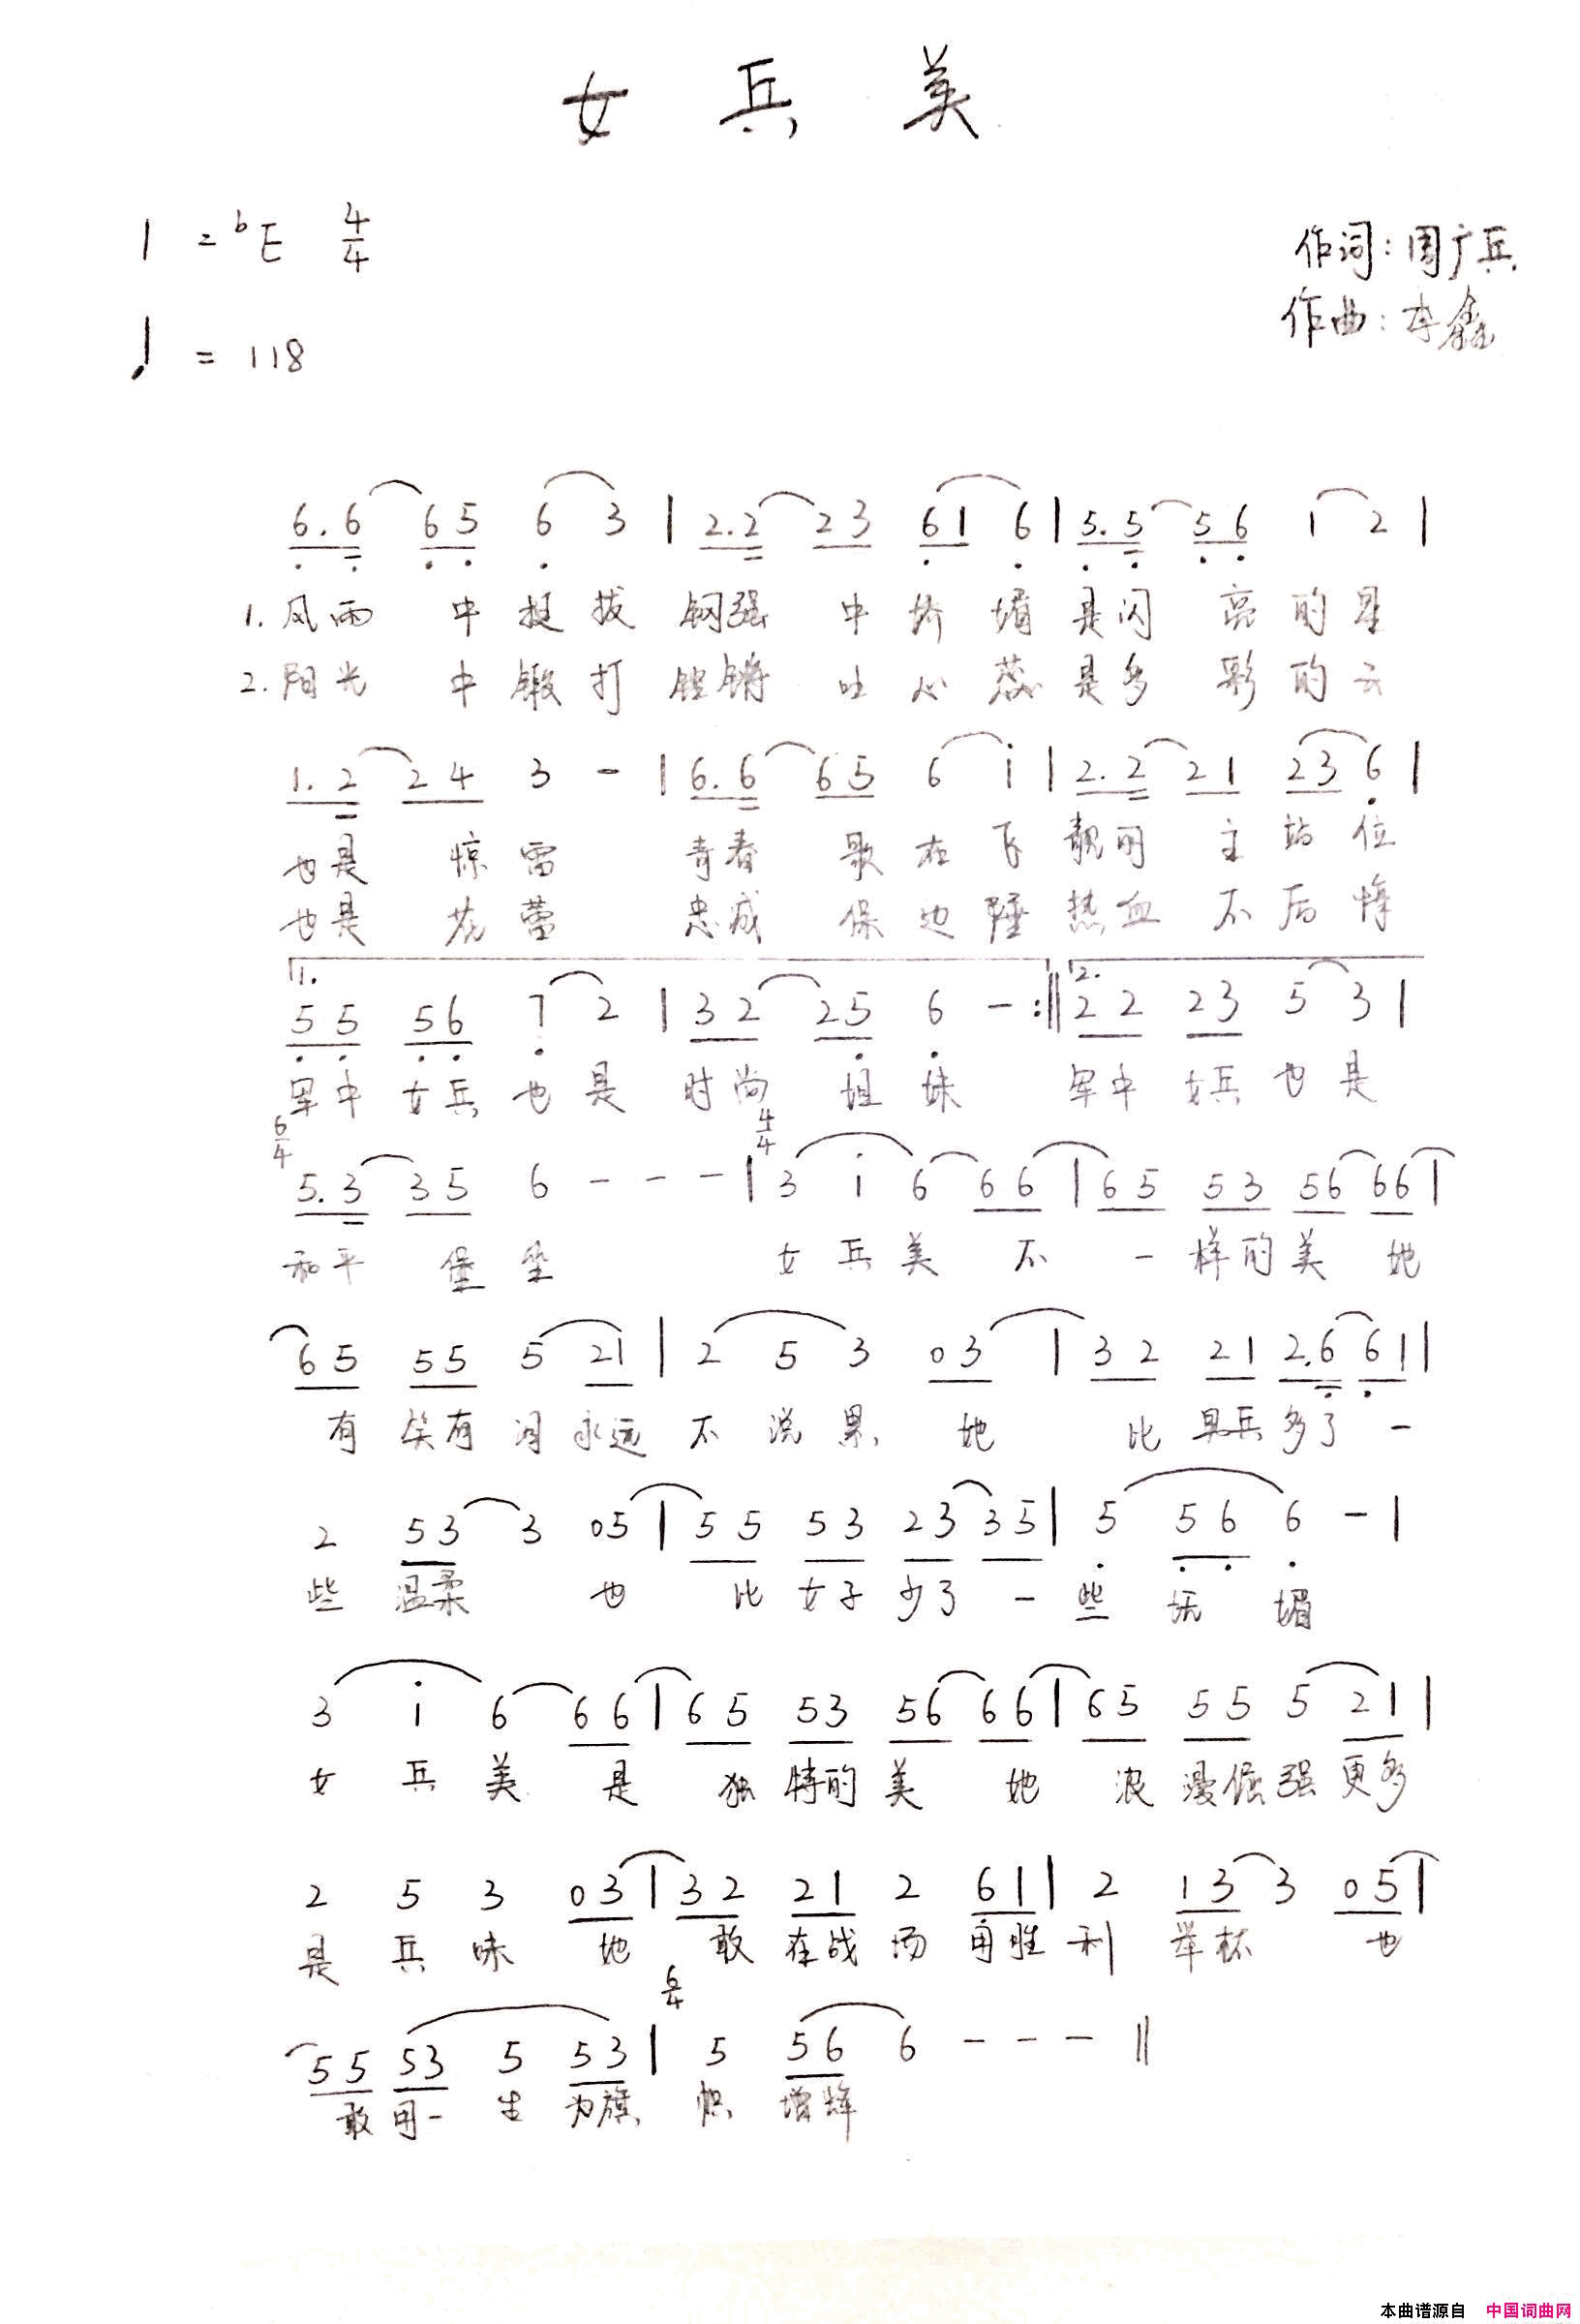 女兵美
1=bE 4/4
作词:周广兵
♩=118
作曲:李鑫
6.6 65 6 3 | 2.2 23 61 6 | 5.5 56 1 2 |
1.风雨 中挺拔 钢强 中娇媚 是闪亮的星
2.阳光 中锻打 铿锵 吐心蕊 是多彩的云
1.2 24 3 - | 6.6 65 6 i | 2.2 21 23 6 |
也是 惊雷 青春 歌在飞 靓丽 主站位
也是 花蕾 忠诚 保边陲 热血 不后悔
1. 2.
55 56 7 2 | 32 25 6 - :‖ 22 23 5 3 |
军中女兵也是 时尚 姐妹 军中女兵也是
6/4 4/4
5.3 35 6 - - - | 3 i 6 66 | 65 53 56 66 |
和平 堡垒 女兵美 不一样的美 她
65 55 5 21 | 2 5 3 03 | 32 21 2.6 61 |
有笑有泪永远 不说累 她 比男兵多了一
2 53 3 05 | 55 53 23 35 | 5 56 6 - |
些 温柔 也 比女子少了一些妩媚
3 i 6 66 | 65 53 56 66 | 65 55 5 21 |
女兵美 是 独特的美 她 浪漫倔强更多
2 5 3 03 | 32 21 2 61 | 2 13 3 05 |
是兵味 她 敢在战场用胜利 举杯 也
6/4
55 53 5 53 | 5 56 6 - - - ‖
敢用一生为旗帜 增辉
本曲谱源自 中国词曲网